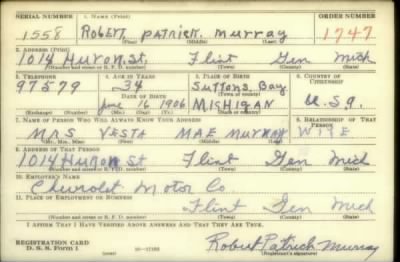 SERIAL NUMBER 1. NAME (Print) ORDER NUMBER
1558 ROBERT PATRICK MURRAY 1747
(First) (Middle) (Last)
2. ADDRESS (Print)
1014 Huron St. Flint Gen Mich
(Number and street or R. F. D. number) (Town) (County) (State)
3. TELEPHONE 4. AGE IN YEARS 5. PLACE OF BIRTH 6. COUNTRY OF CITIZENSHIP
97579 34 Suttons Bay
(Town or county)
DATE OF BIRTH
June 16 1906 MICHIGAN U.S.A.
(Exchange) (Number) (Mo.) (Day) (Yr.) (State or country)
7. NAME OF PERSON WHO WILL ALWAYS KNOW YOUR ADDRESS 8. RELATIONSHIP OF THAT PERSON
MRS VESTA MAE MURRAY WIFE
(Mr., Mrs., Miss) (First) (Middle) (Last)
9. ADDRESS OF THAT PERSON
1014 Huron St Flint Gen Mich
(Number and street or R. F. D. number) (Town) (County) (State)
10. EMPLOYER'S NAME
Chevrolet Motor Co.
11. PLACE OF EMPLOYMENT OR BUSINESS
Flint Gen Mich
(Number and street or R. F. D. number) (Town) (County) (State)
I AFFIRM THAT I HAVE VERIFIED ABOVE ANSWERS AND THAT THEY ARE TRUE.
REGISTRATION CARD
D. S. S. Form 1 Robert Patrick Murray
(over) (Registrant's signature)